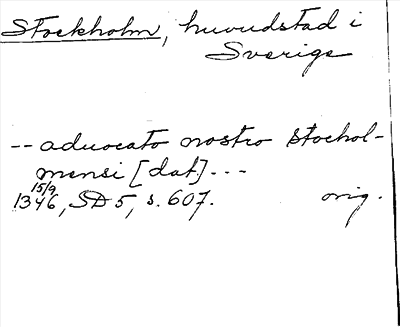 Stockholm, huvudstad i
Sverige
-- aduocato nostro stochol-
mensi [dat.] ---
15/9
1346, SD 5, s. 607. orig.